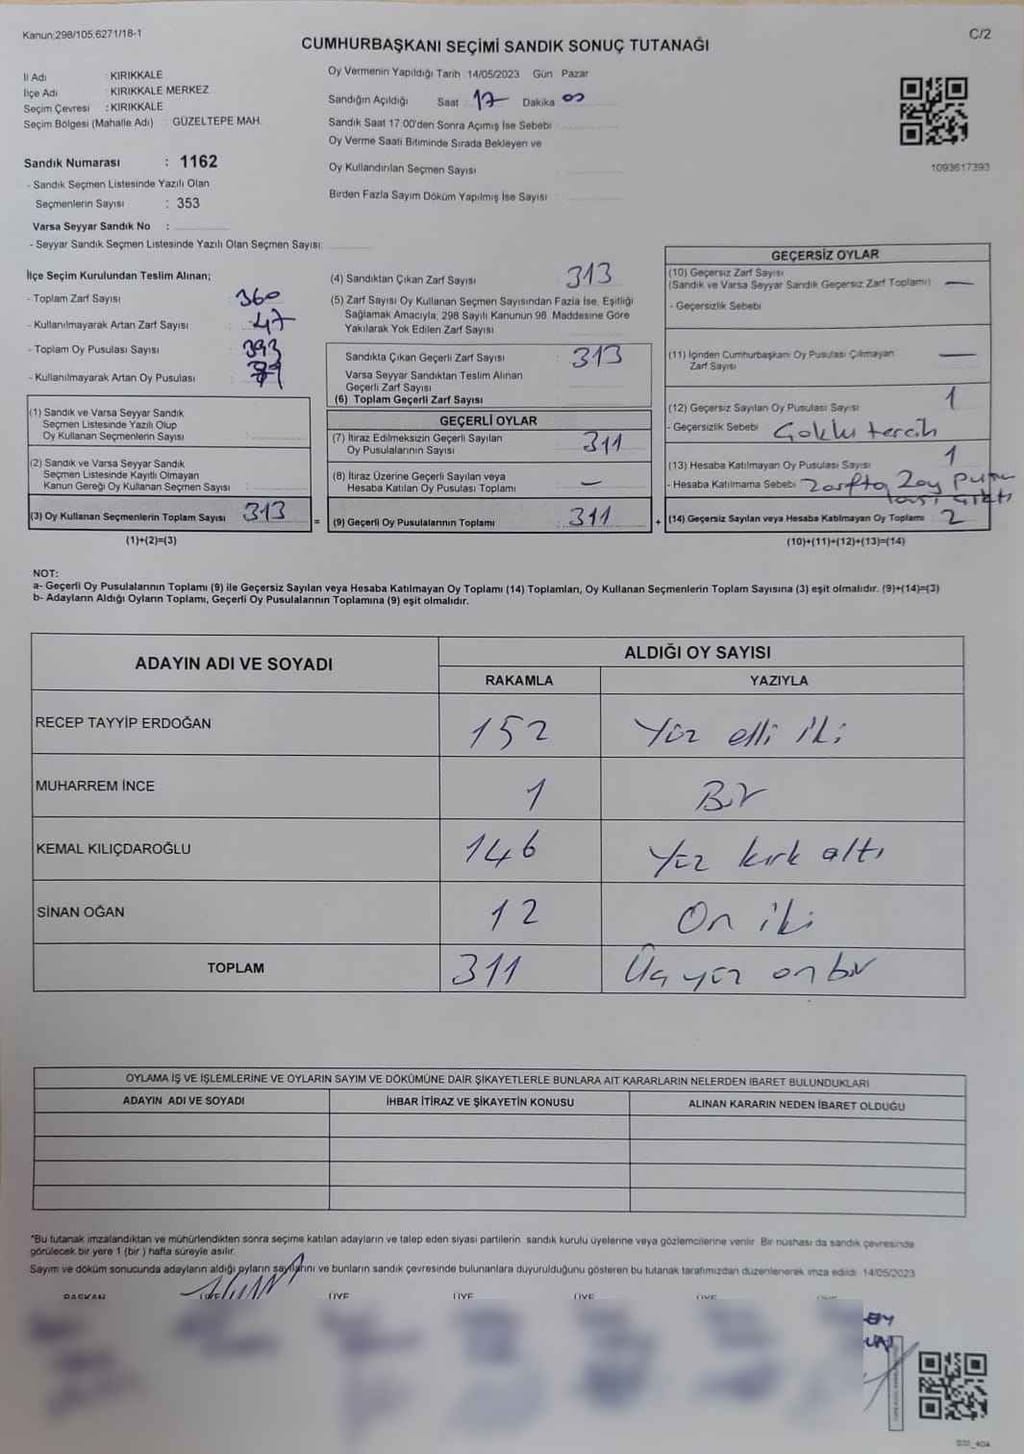 Kanun:298/105.6271/18-1
C/2
CUMHURBAŞKANI SEÇİMİ SANDIK SONUÇ TUTANAĞI
İl Adı : KIRIKKALE
İlçe Adı : KIRIKKALE MERKEZ
Seçim Çevresi : KIRIKKALE
Seçim Bölgesi (Mahalle Adı) GÜZELTEPE MAH.
Sandık Numarası : 1162
- Sandık Seçmen Listesinde Yazılı Olan
Seçmenlerin Sayısı : 353
Varsa Seyyar Sandık No :
- Seyyar Sandık Seçmen Listesinde Yazılı Olan Seçmen Sayısı:
Oy Vermenin Yapıldığı Tarih 14/05/2023 Gün Pazar
Sandığın Açıldığı Saat 17 Dakika 00
Sandık Saat 17:00'den Sonra Açımış İse Sebebi
Oy Verme Saati Bitiminde Sırada Bekleyen ve
Oy Kullandırılan Seçmen Sayısı
Birden Fazla Sayım Döküm Yapılmış İse Sayısı
1093617393
İlçe Seçim Kurulundan Teslim Alınan;
- Toplam Zarf Sayısı : 360
- Kullanılmayarak Artan Zarf Sayısı : 47
- Toplam Oy Pusulası Sayısı : 393
- Kullanılmayarak Artan Oy Pusulası :
(1) Sandık ve Varsa Seyyar Sandık
Seçmen Listesinde Yazılı Olup
Oy Kullanan Seçmenlerin Sayısı :
(2) Sandık ve Varsa Seyyar Sandık
Seçmen Listesinde Kayıtlı Olmayan
Kanun Gereği Oy Kullanan Seçmen Sayısı
(3) Oy Kullanan Seçmenlerin Toplam Sayısı 313
(1)+(2)=(3)
(4) Sandıktan Çıkan Zarf Sayısı : 313
(5) Zarf Sayısı Oy Kullanan Seçmen Sayısından Fazla İse, Eşitliği
Sağlamak Amacıyla, 298 Sayılı Kanunun 98. Maddesine Göre
Yakılarak Yok Edilen Zarf Sayısı
Sandıkta Çıkan Geçerli Zarf Sayısı : 313
Varsa Seyyar Sandıktan Teslim Alınan
Geçerli Zarf Sayısı
(6) Toplam Geçerli Zarf Sayısı
GEÇERLİ OYLAR
(7) İtiraz Edilmeksizin Geçerli Sayılan
Oy Pusulalarının Sayısı : 311
(8) İtiraz Üzerine Geçerli Sayılan veya
Hesaba Katılan Oy Pusulası Toplamı : —
= (9) Geçerli Oy Pusulalarının Toplamı : 311
GEÇERSİZ OYLAR
(10) Geçersiz Zarf Sayısı
(Sandık ve Varsa Seyyar Sandık Geçersiz Zarf Toplamı) —
- Geçersizlik Sebebi
(11) İçinden Cumhurbaşkanı Oy Pusulası Çıkmayan
Zarf Sayısı —
(12) Geçersiz Sayılan Oy Pusulası Sayısı 1
- Geçersizlik Sebebi Çoklu tercih
(13) Hesaba Katılmayan Oy Pusulası Sayısı 1
- Hesaba Katılmama Sebebi Zarfta 2 oy pusu
lası çıktı
+ (14) Geçersiz Sayılan veya Hesaba Katılmayan Oy Toplamı 2
(10)+(11)+(12)+(13)=(14)
NOT:
a- Geçerli Oy Pusulalarının Toplamı (9) ile Geçersiz Sayılan veya Hesaba Katılmayan Oy Toplamı (14) Toplamları, Oy Kullanan Seçmenlerin Toplam Sayısına (3) eşit olmalıdır. (9)+(14)=(3)
b- Adayların Aldığı Oyların Toplamı, Geçerli Oy Pusulalarının Toplamına (9) eşit olmalıdır.
ADAYIN ADI VE SOYADI
ALDIĞI OY SAYISI
RAKAMLA YAZIYLA
RECEP TAYYİP ERDOĞAN 152 Yüz elli iki
MUHARREM İNCE 1 Bir
KEMAL KILIÇDAROĞLU 146 Yüz kırk altı
SİNAN OĞAN 12 On iki
TOPLAM 311 Üç yüz on bir
OYLAMA İŞ VE İŞLEMLERİNE VE OYLARIN SAYIM VE DÖKÜMÜNE DAİR ŞİKAYETLERLE BUNLARA AİT KARARLARIN NELERDEN İBARET BULUNDUKLARI
ADAYIN ADI VE SOYADI İHBAR İTİRAZ VE ŞİKAYETİN KONUSU ALINAN KARARIN NEDEN İBARET OLDUĞU
*Bu tutanak imzalandıktan ve mühürlendikten sonra seçime katılan adayların ve talep eden siyasi partilerin sandık kurulu üyelerine veya gözlemcilerine verilir. Bir nüshası da sandık çevresinde
görülecek bir yere 1 (bir ) hafta süreyle asılır.
Sayım ve döküm sonucunda adayların aldığı oyların sayılarını ve bunların sandık çevresinde bulunanlara duyurulduğunu gösteren bu tutanak tarafımızdan düzenlenerek imza edildi. 14/05/2023
BAŞKAN ÜYE ÜYE ÜYE ÜYE ÜYE ÜYE